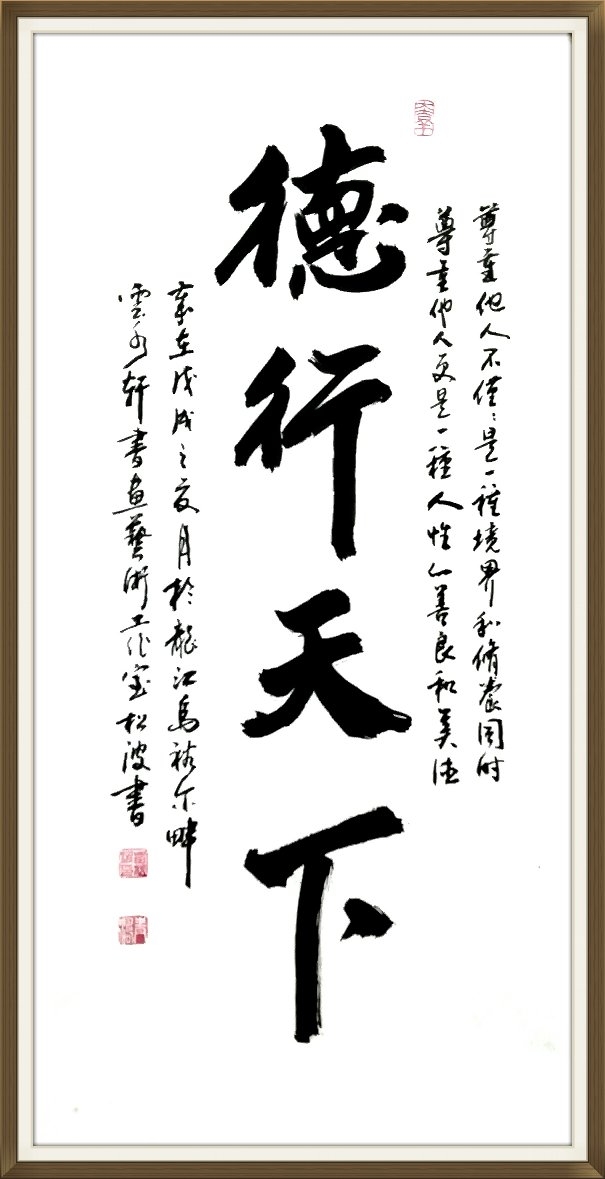 尊重他人不僅〻是一種境界和脩養同時
尊重他人更是一種人性善良和美德
德行天下
歲在戊戌之夏月於龍江烏裕尔畔
雲水軒書畫藝術工作室松波書